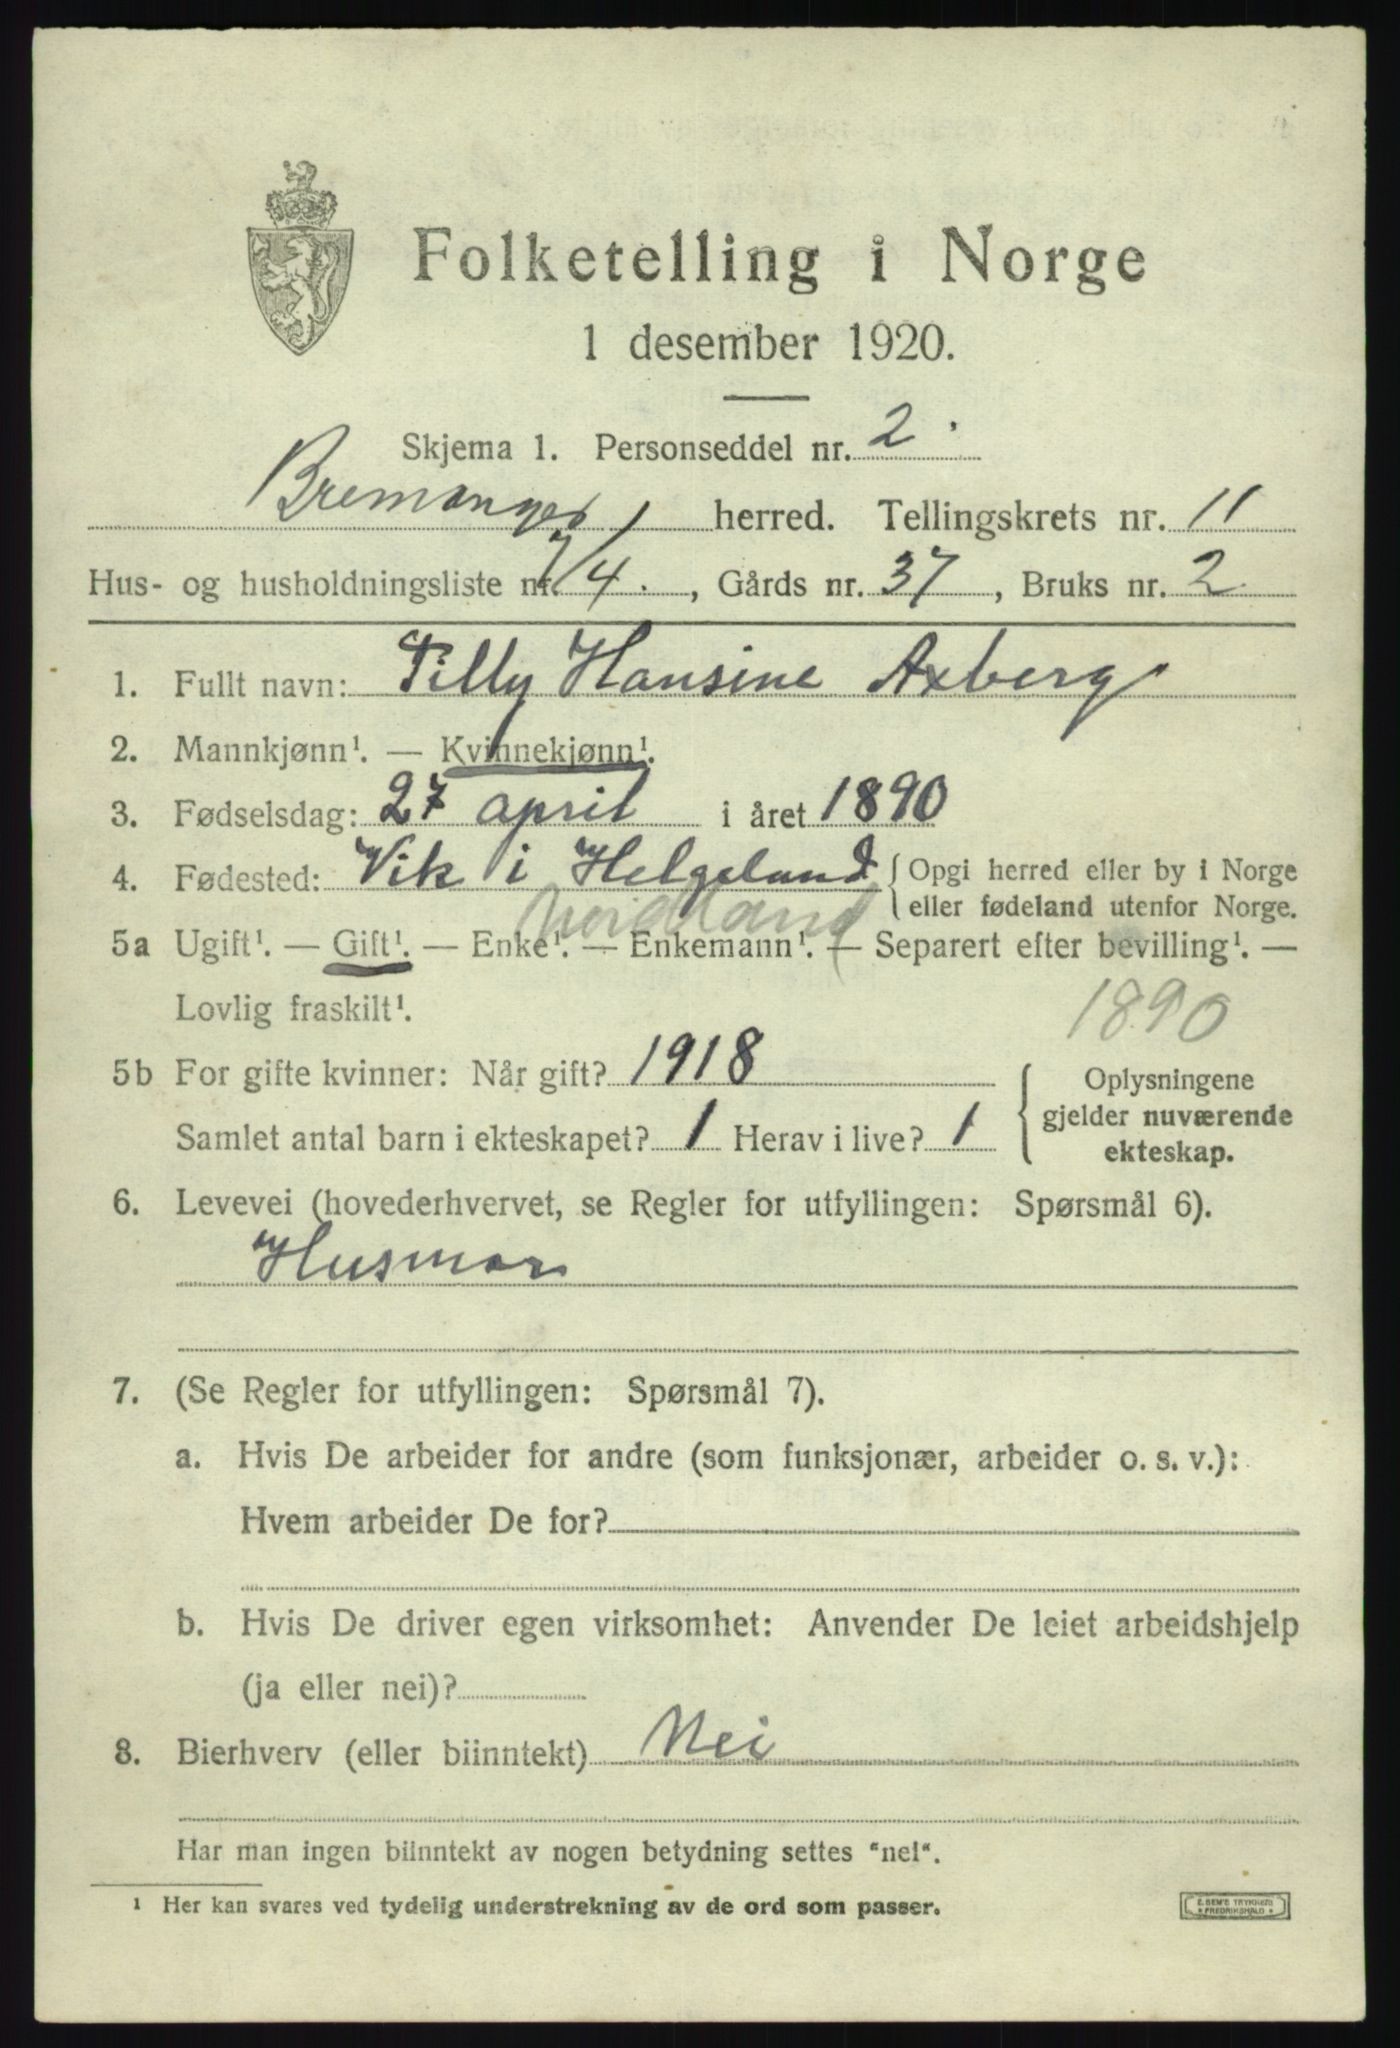 Folketelling i Norge
1 desember 1920.
Skjema 1. Personseddel nr. 2.
Bremanger herred. Tellingskrets nr. 11
Hus- og husholdningsliste nr. 4., Gårds nr. 37, Bruks nr. 2
1. Fullt navn: Tilly Hansine Axberg
2. Mannkjønn¹. — Kvinnekjønn¹.
3. Fødselsdag: 27 april i året 1890
4. Fødested: Vik i Helgeland { Opgi herred eller by i Norge
eller fødeland utenfor Norge.
Nordland
5a Ugift¹. — Gift¹. — Enke¹. — Enkemann¹. — Separert efter bevilling¹. —
Lovlig fraskilt¹.
1890
5b For gifte kvinner: Når gift? 1918
Samlet antal barn i ekteskapet? 1 Herav i live? 1
{ Oplysningene
gjelder nuværende
ekteskap.
6. Levevei (hovederhvervet, se Regler for utfyllingen: Spørsmål 6).
Husmor
7. (Se Regler for utfyllingen: Spørsmål 7).
a. Hvis De arbeider for andre (som funksjonær, arbeider o. s. v.):
Hvem arbeider De for?
b. Hvis De driver egen virksomhet: Anvender De leiet arbeidshjelp
(ja eller nei)?
8. Bierhverv (eller biinntekt) Nei
Har man ingen biinntekt av nogen betydning settes "nei".
¹ Her kan svares ved tydelig understrekning av de ord som passer.
E. SEM'S TRYKKERI
FREDRIKSHALD